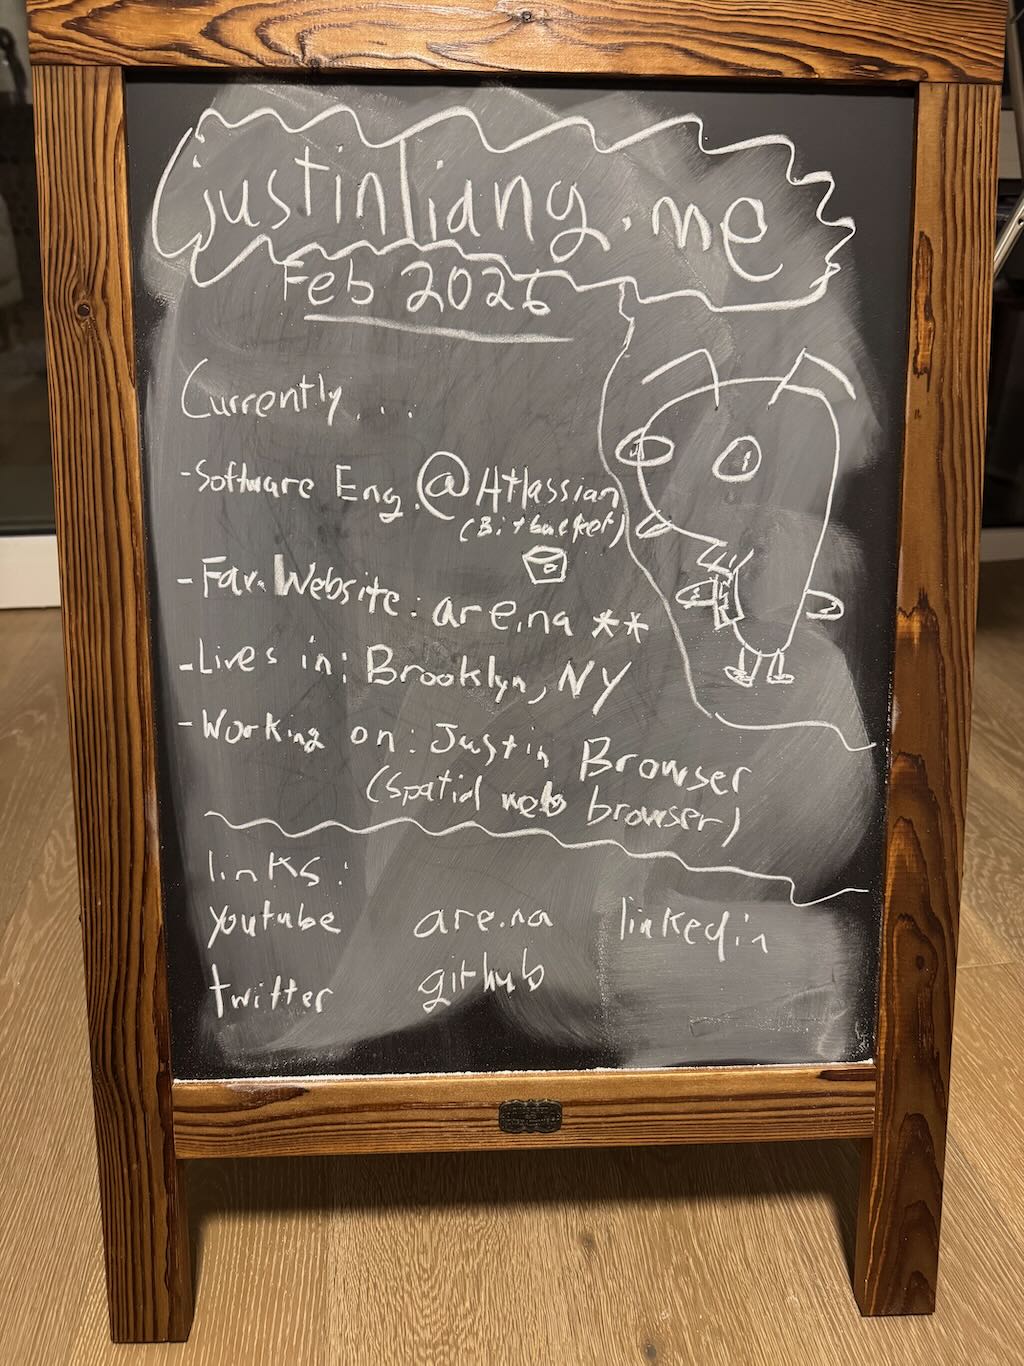 justinliang.me
Feb 2026
Currently...
-Software Eng. @Atlassian
(Bitbucket)
-Fav. Website: are.na **
-Lives in: Brooklyn, NY
-Working on: Justin Browser
(spatial web browser)
links:
youtube are.na linkedin
twitter github